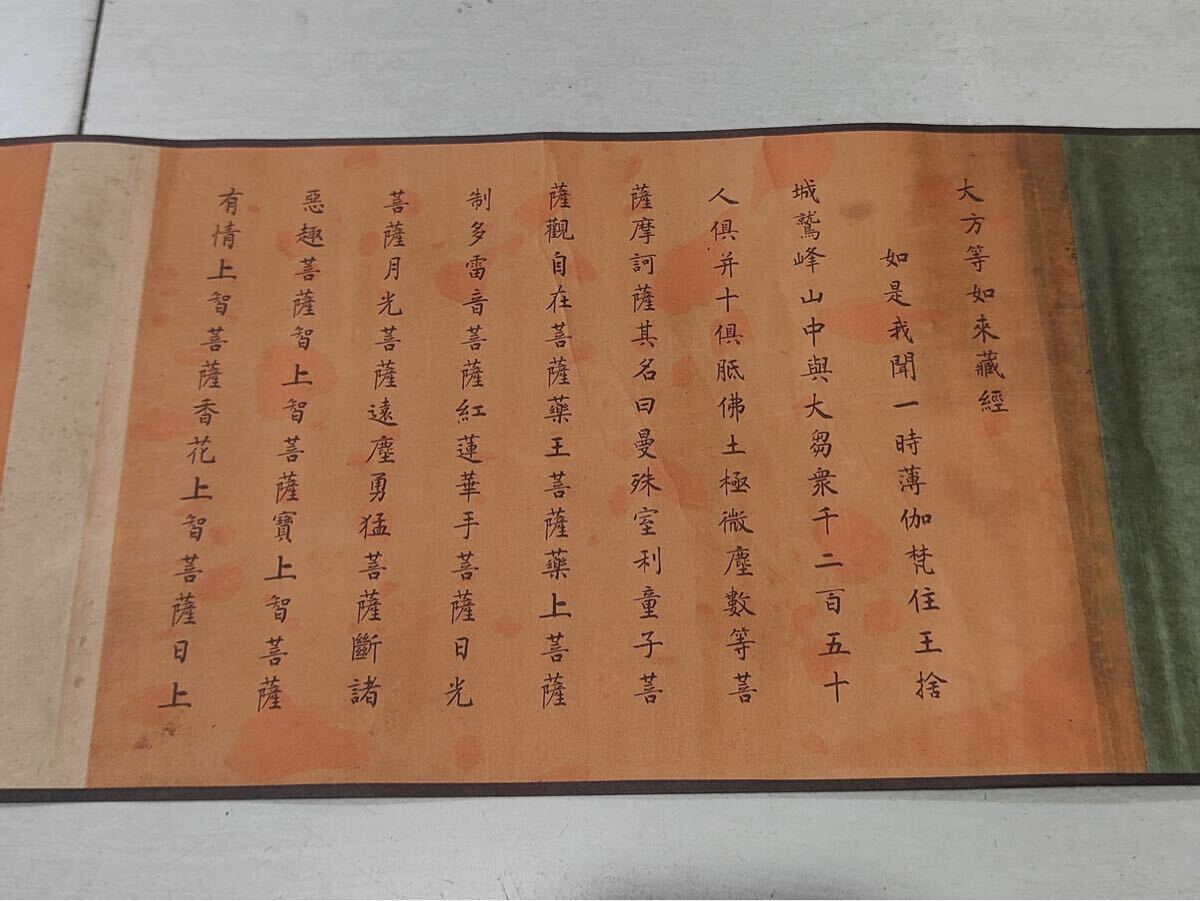 大方等如來藏經
如是我聞一時薄伽梵住王捨
城鷲峰山中與大芻衆千二百五十
人俱并十俱胝佛土極微塵數等菩
薩摩訶薩其名曰曼殊室利童子菩
薩觀自在菩薩藥王菩薩藥上菩薩
制多雷音菩薩紅蓮華手菩薩日光
菩薩月光菩薩遠塵勇猛菩薩斷諸
惡趣菩薩智上智菩薩寶上智菩薩
有情上智菩薩香花上智菩薩日上